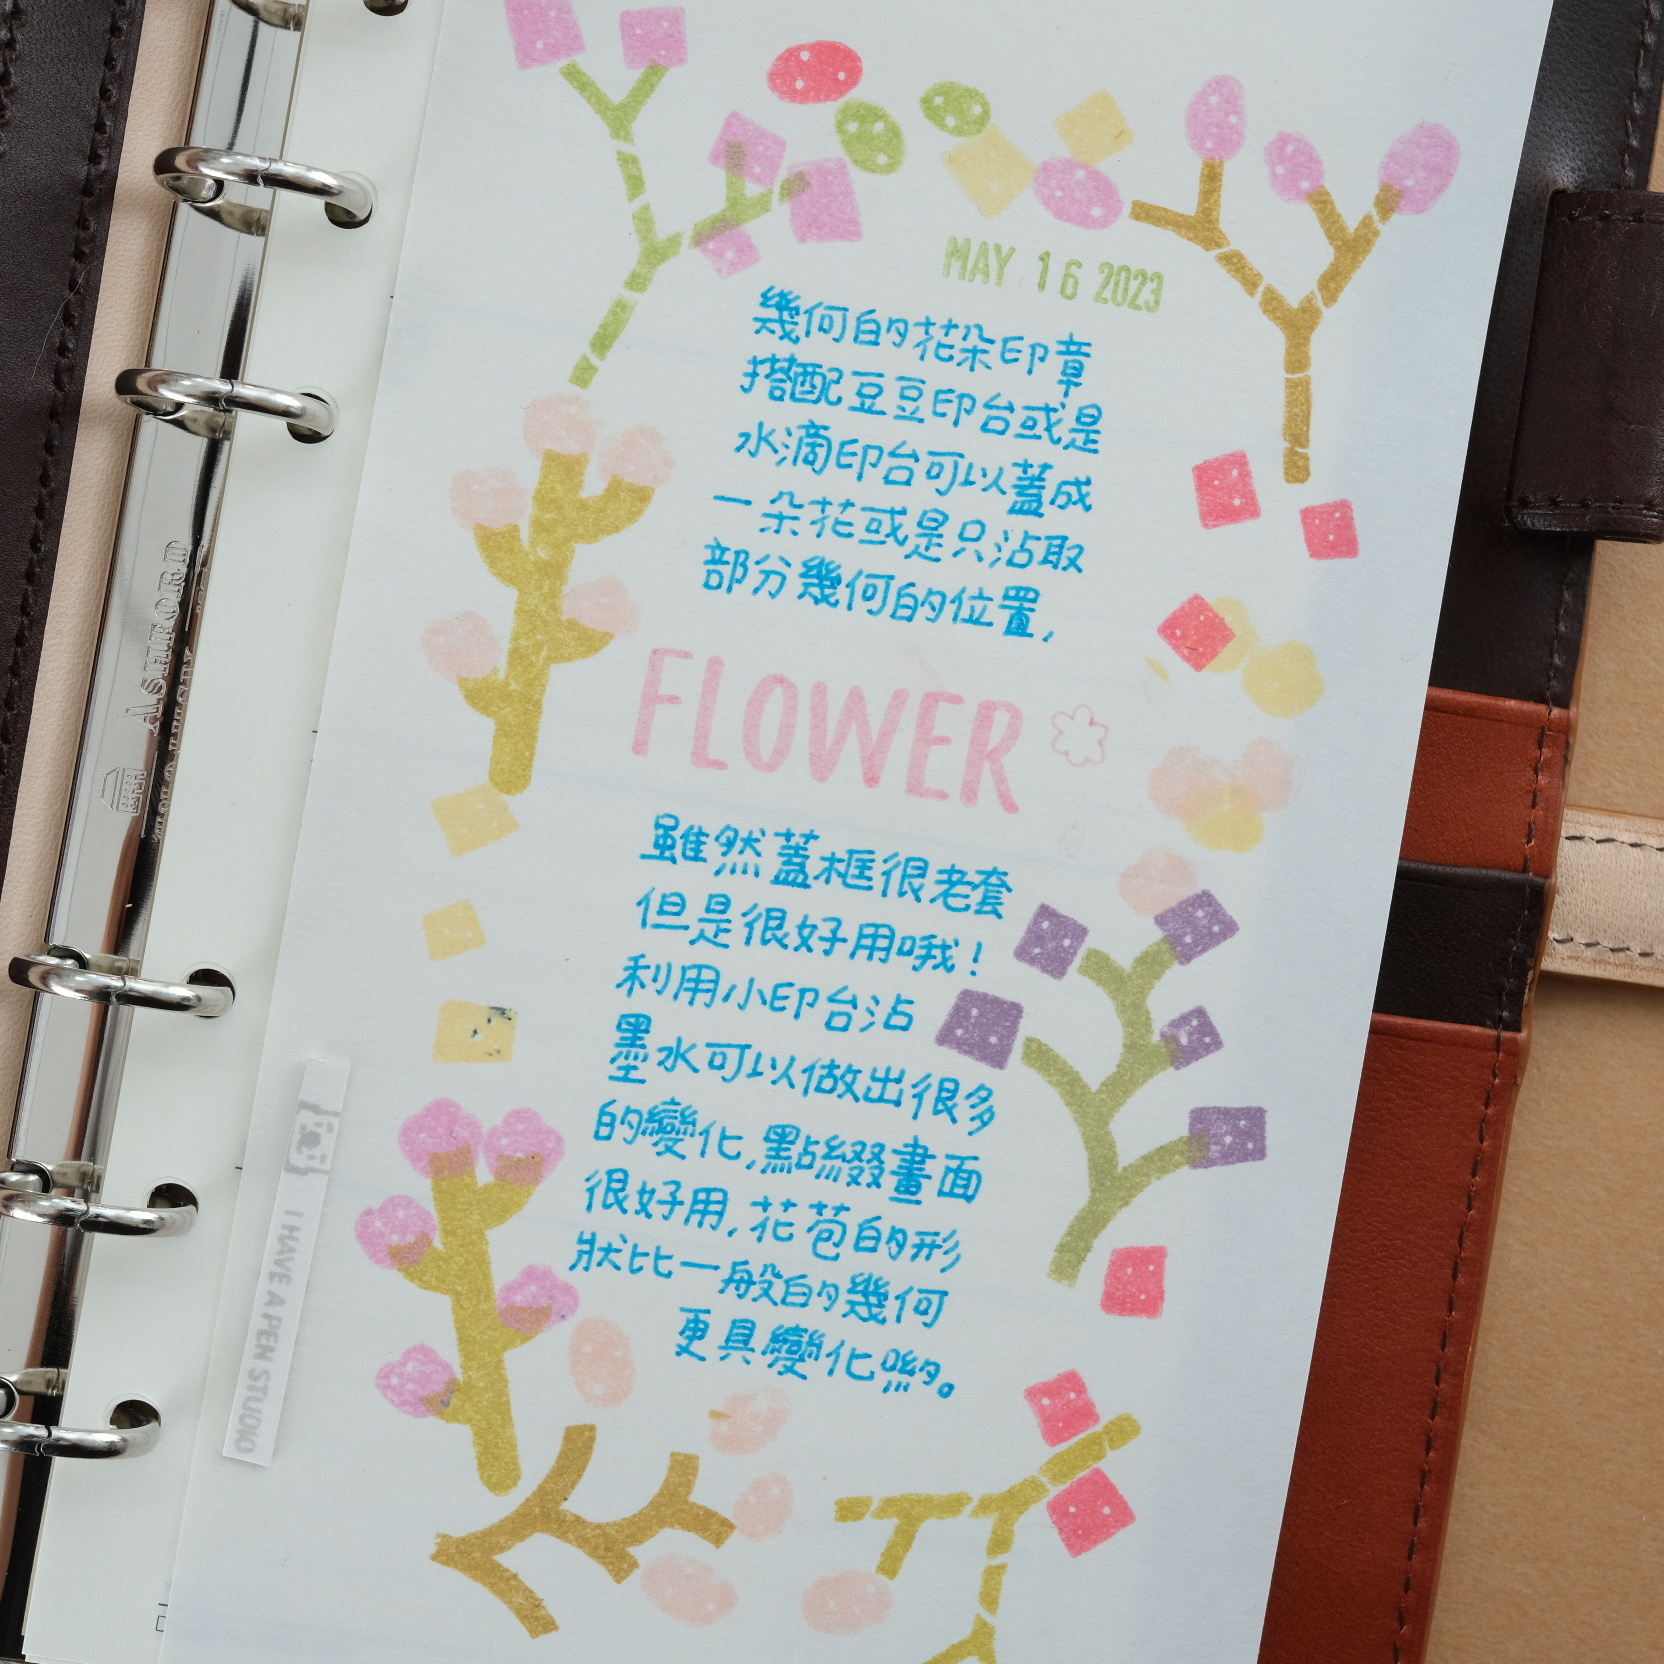 MAY 16 2023
幾何的花朵印章
搭配豆豆印台或是
水滴印台可以蓋成
一朵花或是只沾取
部分幾何的位置,
FLOWER
雖然蓋框很老套
但是很好用哦!
利用小印台沾
墨水可以做出很多
的變化,點綴畫面
很好用,花苞的形
狀比一般的幾何
更具變化喲。
I HAVE A PEN STUDIO
ASHFORD